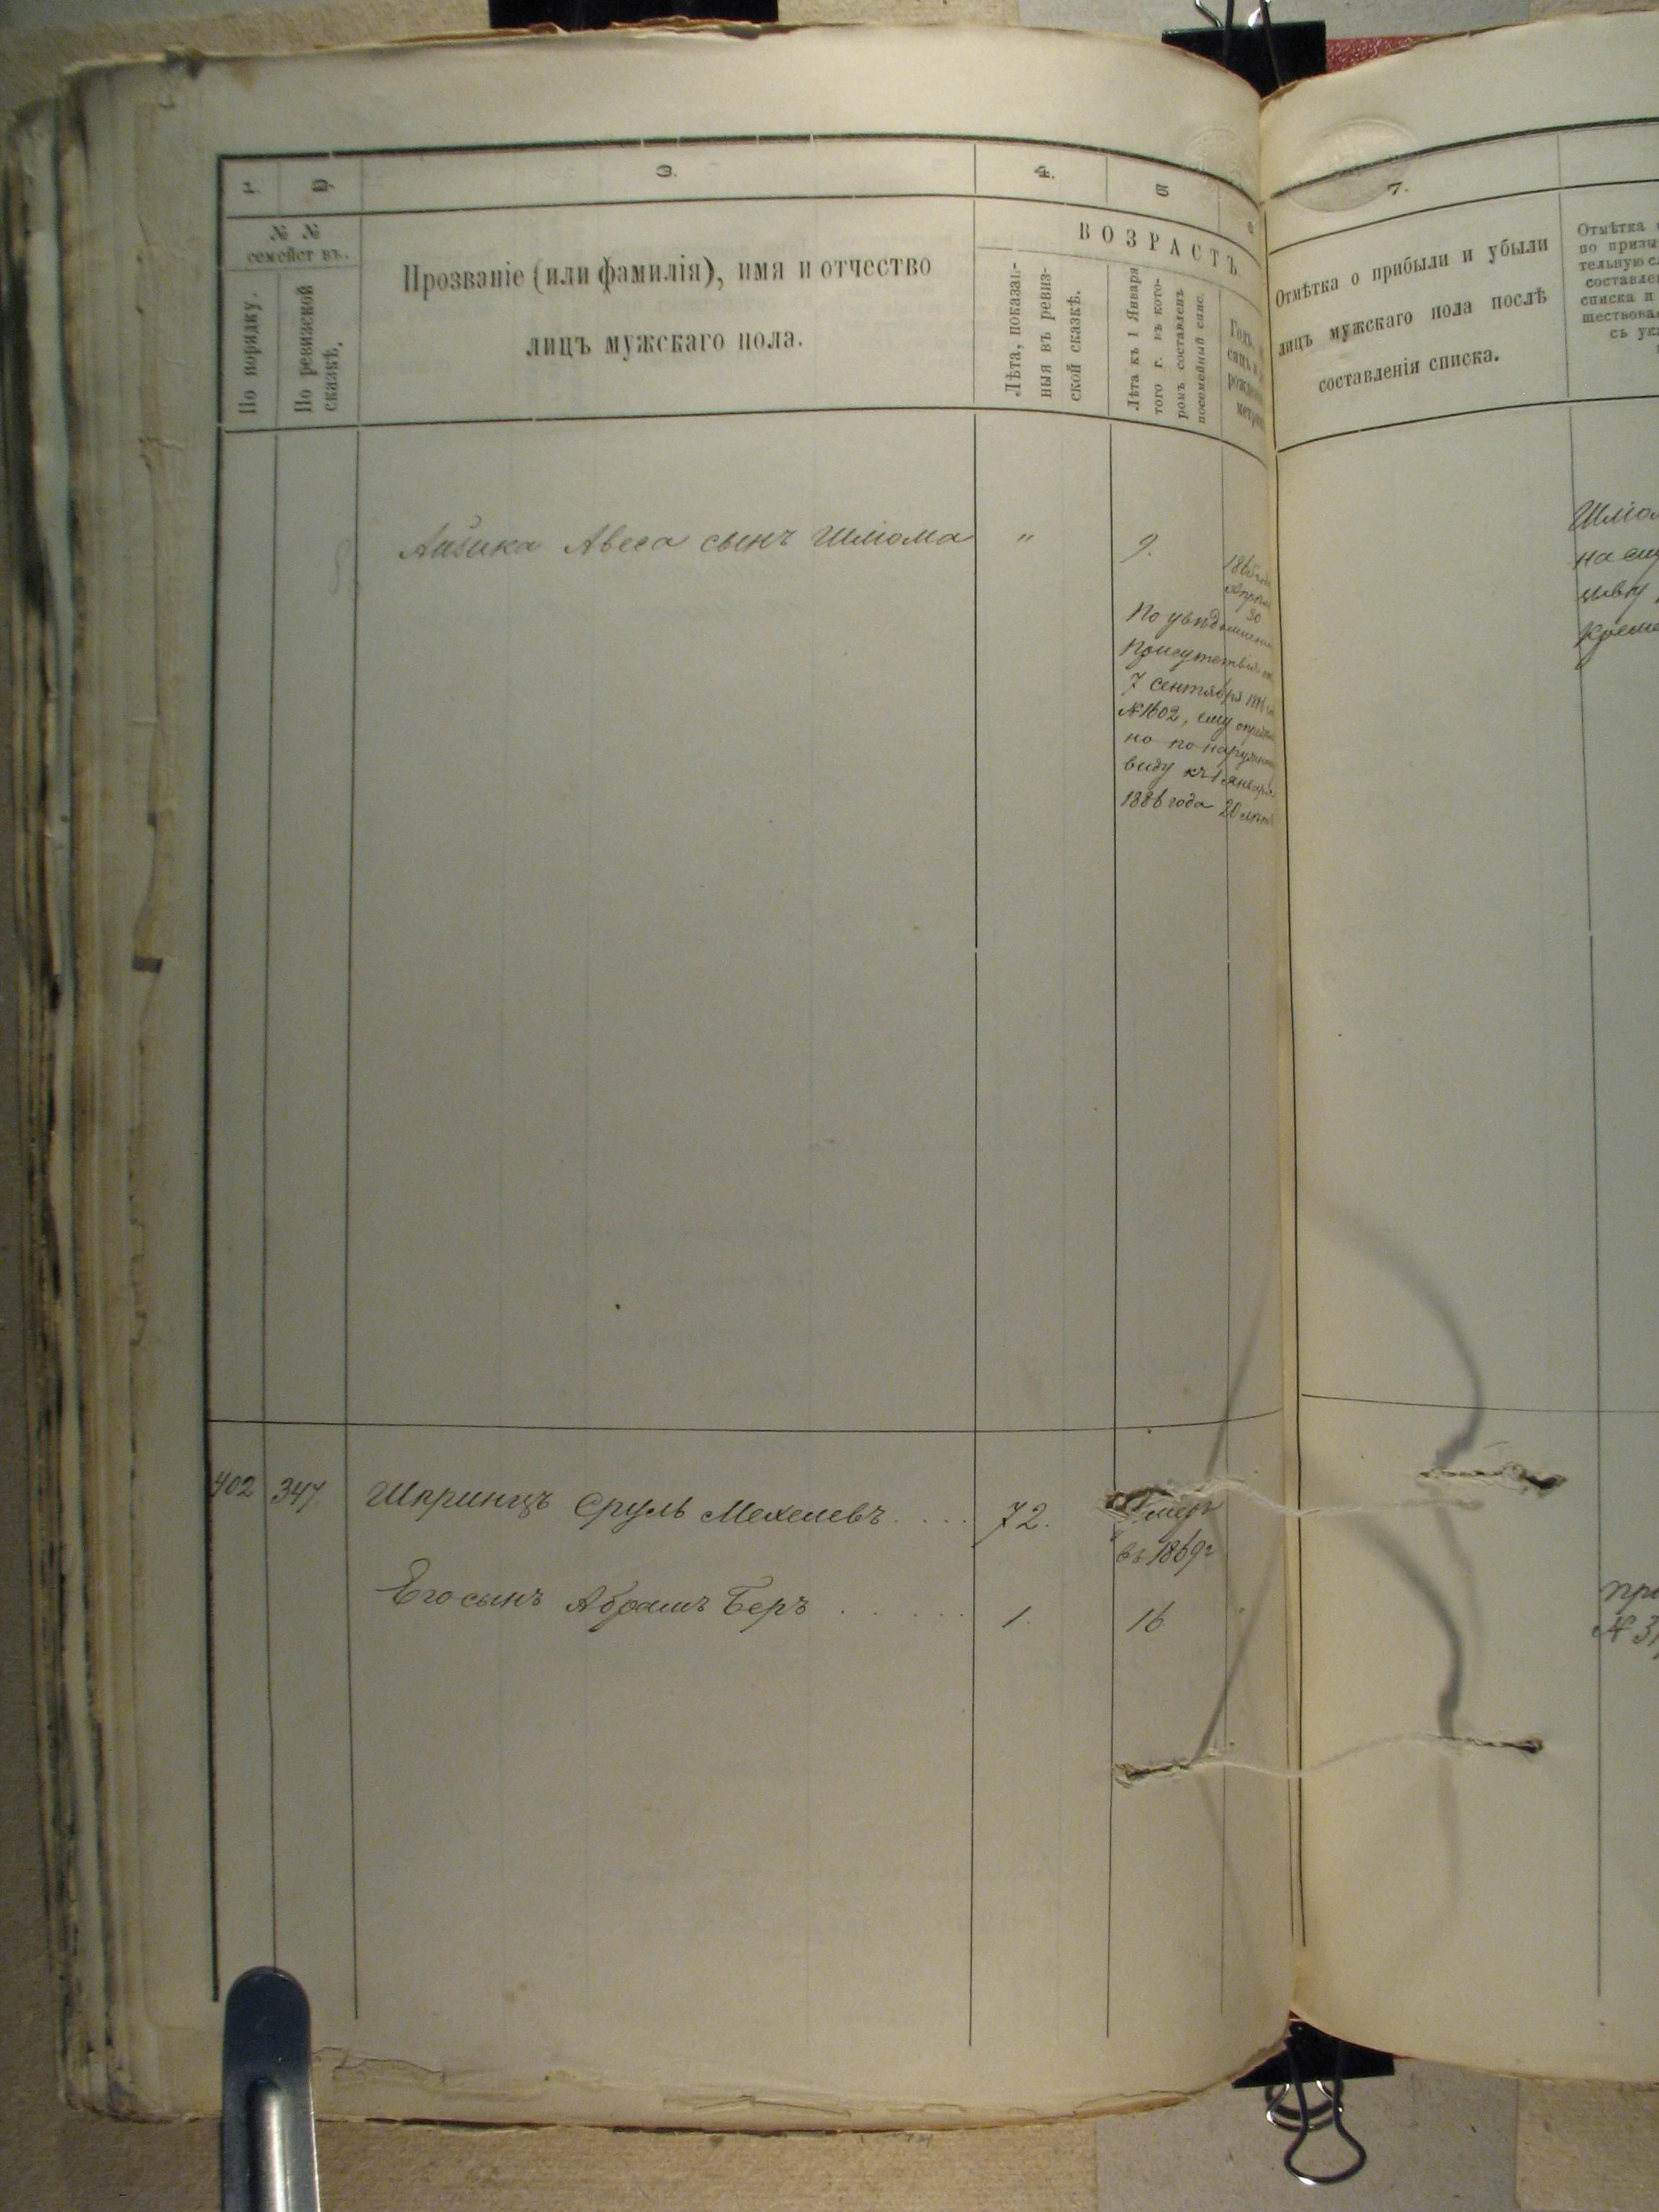 1. 2. 3. 4. 5 6
№ №
семействъ.
По порядку.
По ревизской
сказкѣ.
Прозваніе (или фамилія), имя и отчество
лицъ мужскаго пола.
ВОЗРАСТЪ
Лѣта, показан-
ныя въ ревиз-
ской сказкѣ.
Лѣта къ 1 Января
того г. въ кото-
ромъ составленъ
посемейный спис.
Годъ,
рожден
метри
Айзика Авеса сынъ Шліома " 9.
1865 года
Апрѣля
30
По увѣдомленію
Присутствія от
7 Сентября
№ 1602, ему опредѣле
но по наружному
виду къ 1 Января
1886 года 20 лѣтъ
402 347 Шпринцъ Сруль Мехелевъ . . . . 72. Умеръ
въ 1869 г
Его сынъ Абрамъ Беръ . . . . . 1. 16
7.
Отмѣтка о прибыли и убыли
лицъ мужскаго пола послѣ
составленія списка.
Отмѣтка
по призы
тельную сл
составле
списка и
шествова
сь ук
Шліом
на
Креме
при
№ 3